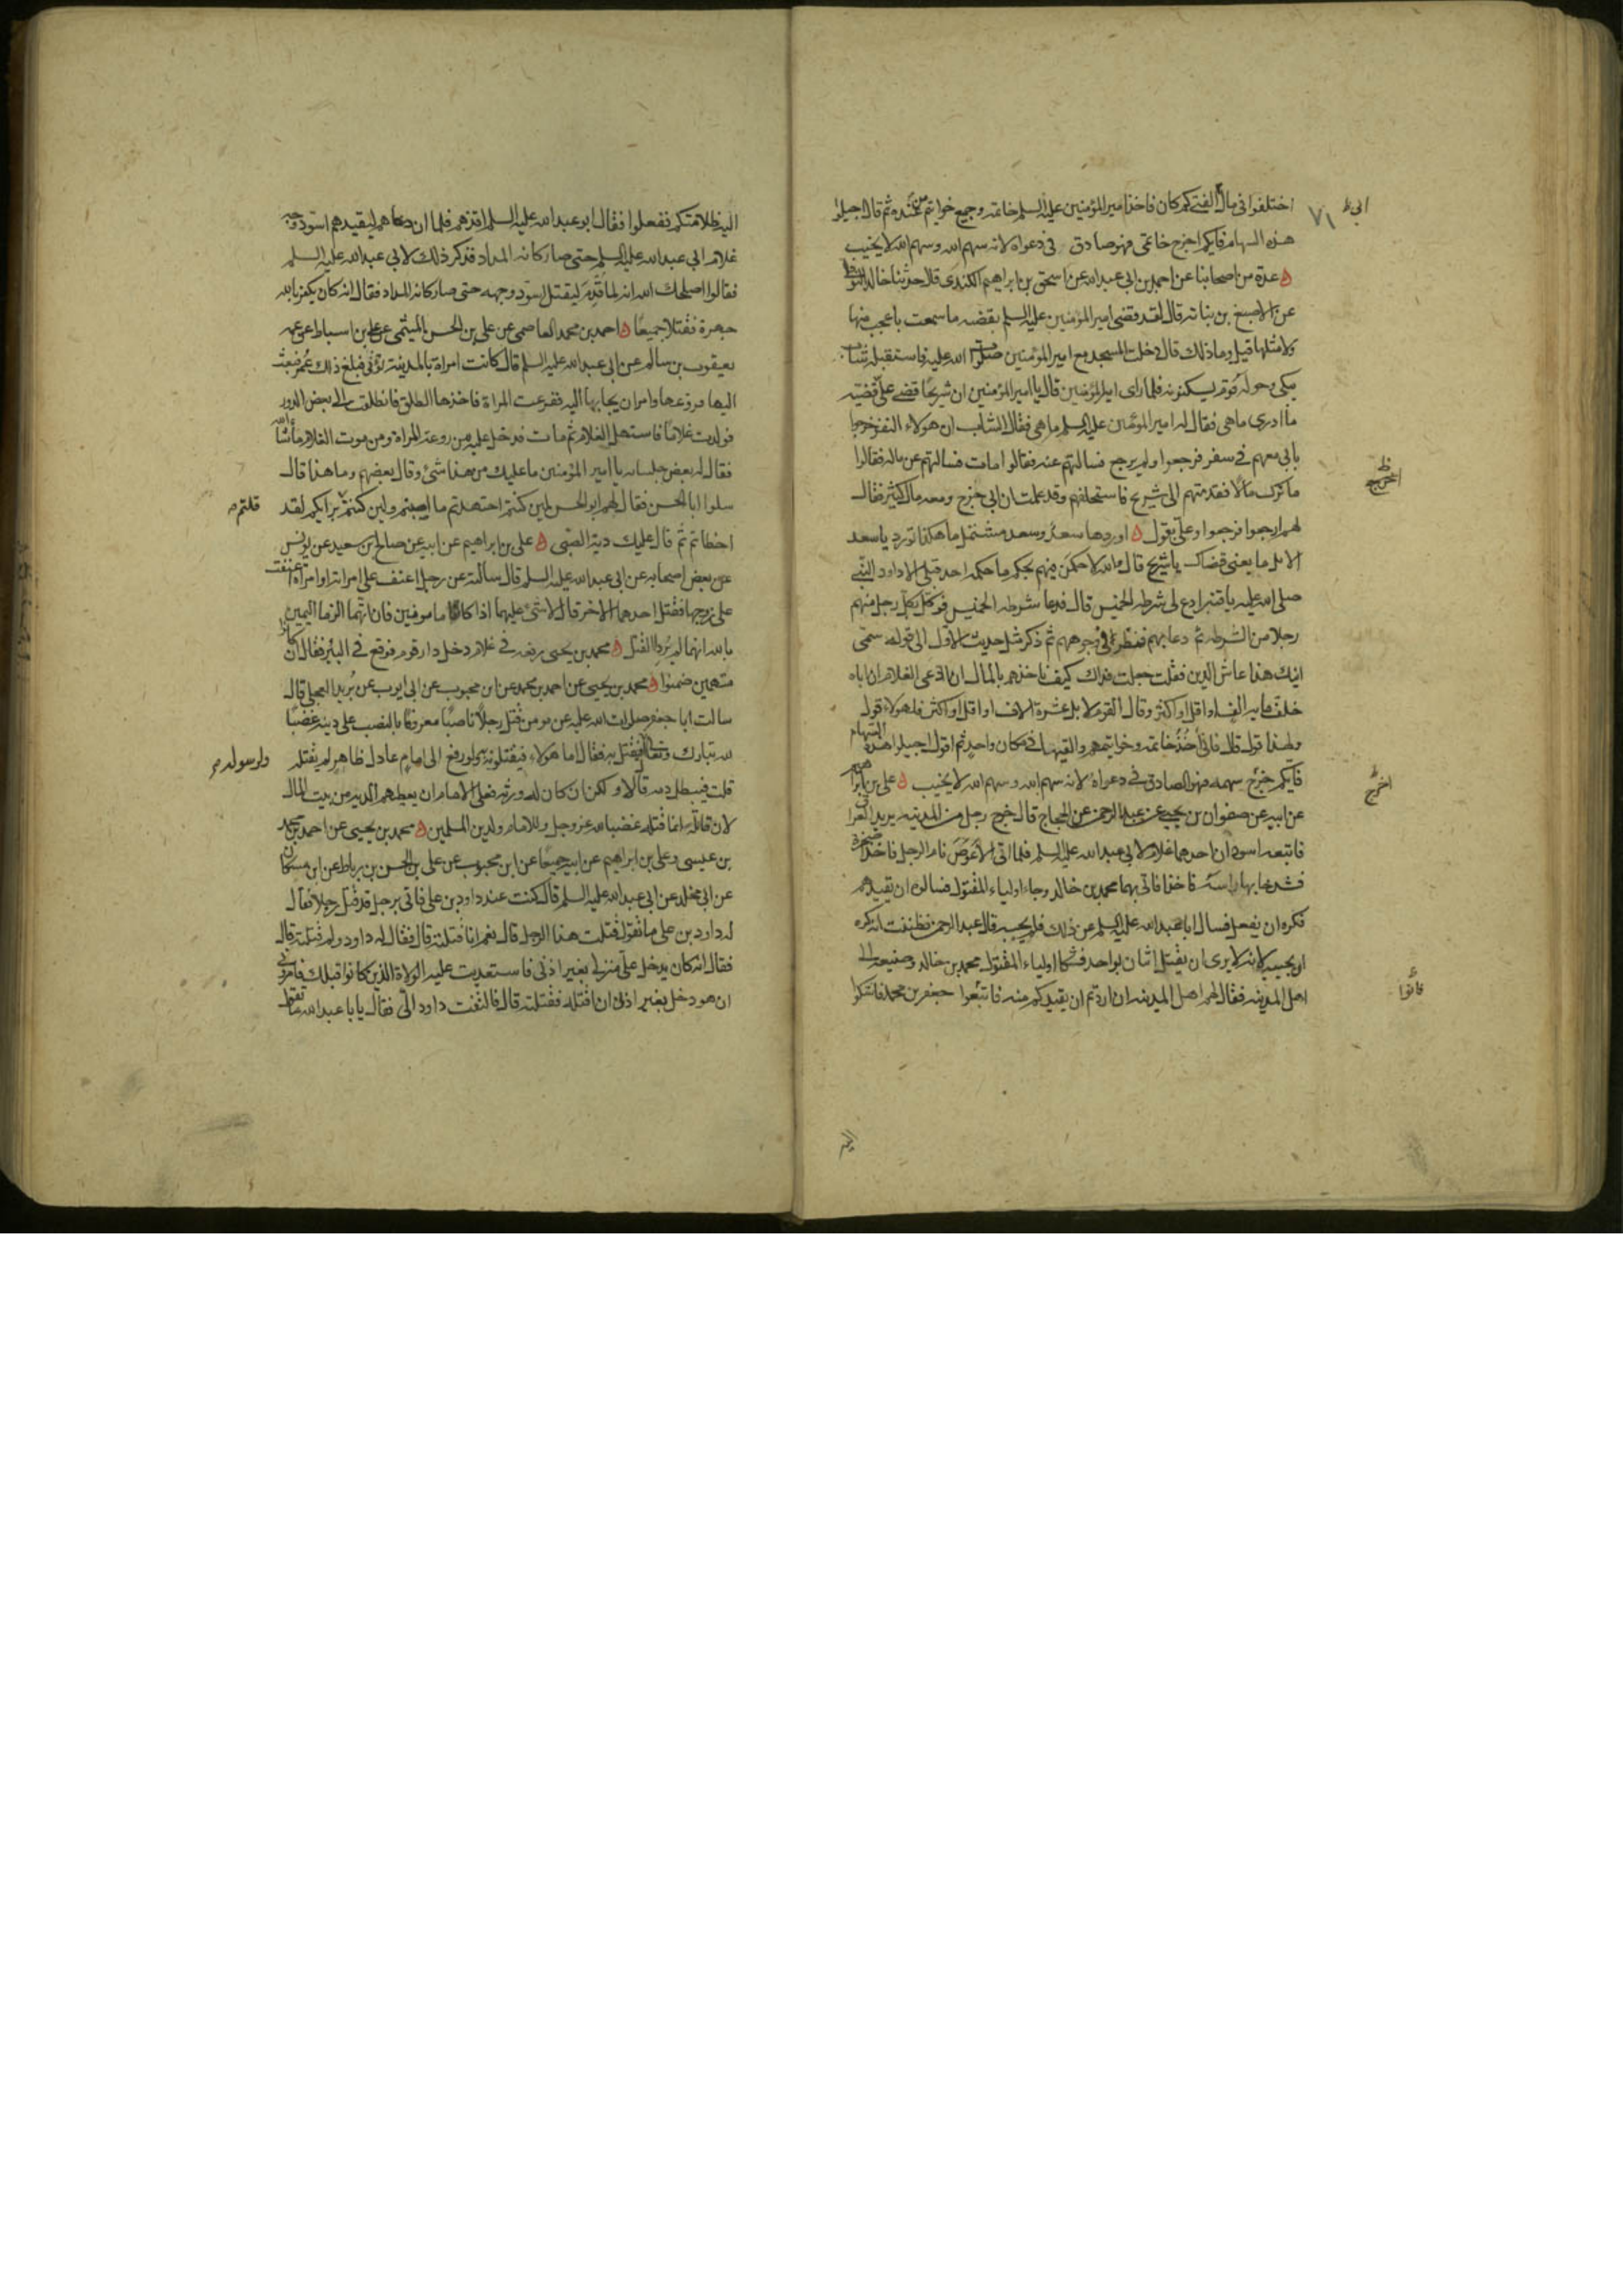 اختلفوا فى مال الفتى كم كان فاخذ امير المؤمنين عليه السلم خاتمه وجميع خواتيم من عنده ثم قال اجيلوا
هذه السهام فايكم اخرج خاتمى فهو صادق فى دعواه لانه سهم الله وسهم الله لا يخيب
عدة من اصحابنا عن احمد بن ابى عبد الله عن اسحق بن ابراهيم الكندى قال حدثنا خالد النوفلى
عن الاصبغ بن نباته قال لقد قضى امير المؤمنين عليه السلم بقضيه ما سمعت باعجب منها
ولا مثلها قيل وما ذلك قال دخلت المسجد مع امير المؤمنين صلوات الله عليه فاستقبله شاب
يبكى وحوله قوم يسكتونه فلما راى امير المؤمنين قال يا امير المؤمنين ان شريحا قضى على قضيه
ما ادرى ما هى فقال له امير المؤمنين عليه السلم ما هى فقال الشاب ان هولاء النفر خرجوا
بابى معهم فى سفر فرجعوا ولم يرجع فسالتهم عنه فقالوا مات فسالتهم عن ماله فقالوا
ما ترك مالا فقدمتهم الى شريح فاستحلفهم وقد علمت ان ابى خرج ومعه مال كثير فقال
لهم ارجعوا فرجعوا وعلى يقول اوردها سعد وسعد مشتمل ما هكذا تورد يا سعد
الابل ما يغنى قضاك يا شريح قال والله لاحكمن فيهم بحكم ما حكمه احد قبلى الا داود النبى
صلى الله عليه يا قنبر ادع لى شرطه الخميس قال فدعا شرطه الخميس فوكل بكل رجل منهم
رجلا من الشرطه ثم دعا بهم فنظر الى وجوههم ثم ذكر مثل حديث الاول الى قوله سمى
ابنك هذا عاش الدين فقلت جعلت فداك كيف ناخذهم بالمال ان ادعى الغلام ان اباه
خلف مايه الف او اقل او اكثر وقال القوم لا بل عشرة الاف او اقل او اكثر فلهولاء قول
ولهذا قول قال فانى اخذ خاتمه وخواتيمهم والقيها فى مكان واحد ثم اقول اجيلوا هذه السهام
فايكم خرج سهمه فهو الصادق فى دعواه لانه سهم الله وسهم الله لا يخيب على بن ابراهيم
عن ابيه عن صفوان بن يحيى عن عبد الرحمن بن الحجاج قال خرج رجل من المدينه يريد العراق
فاتبعه اسودان احدهما غلام لابى عبد الله عليه السلم فلما اتى الاعوص نام الرجل فاخذا صخره
فشدخا بها راسه فاخذا فاتى بهما محمد بن خالد وجاء اولياء المقتول فسالوه ان يقيدهم
فكره ان يفعل فسال ابا عبد الله عليه السلم عن ذلك فلم يجبه قال عبد الرحمن فظننت انه كره
ان يجيبه لانه لا يرى ان يقتل اثنان بواحد فشكا اولياء المقتول محمد بن خالد وصنيعه الى
اهل المدينه فقال لهم اهل المدينه ان اردتم ان يقيدكم منه فاتبعوا جعفر بن محمد فاشكوا
ابى ظ
٧١
اخرج
فاتوا
اليه ظلامتكم ففعلوا فقال ابو عبد الله عليه السلم اقدهم فلما ان دعاهم ليقيدهم اسود وجه
غلام ابى عبد الله عليه السلم حتى صار كانه المداد فذكر ذلك لابى عبد الله عليه السلم
فقالوا اصلحك الله انه لما قدم ليقتل اسود وجهه حتى صار كانه المداد فقال انه كان يكفر بالله
جهرة فقتلا جميعا احمد بن محمد العاصمى عن على بن الحسن الميثمى عن على بن اسباط عن عمه
يعقوب بن سالم عن ابى عبد الله عليه السلم قال كانت امراة بالمدينة تؤتى فبلغ ذلك عمر فبعث
اليها فروعها وامر ان يجا بها اليه ففزعت المراة فاخذها الطلق فانطلقت الى بعض الدور
فولدت غلاما فاستهل الغلام ثم مات فدخل عليه من روعة المراة ومن موت الغلام ما شا الله
فقال له بعض جلسائه يا امير المؤمنين ما عليك من هذا شئ وقال بعضهم وما هذا قال
سلوا ابا الحسن فقال لهم ابو الحسن لين كنتم اجتهدتم ما اصبتم ولين كنتم برايكم لقد
قلتم
اخطاتم ثم قال عليك دية الصبى على بن ابراهيم عن ابيه عن صالح بن سعيد عن يونس
عن بعض اصحابه عن ابى عبد الله عليه السلم قال سالته عن رجل اعنف على امراته او امراة اعنفت
على زوجها فقتل احدهما الاخر قال لا شئ عليهما اذا كانا مامونين فان اتهما الزما اليمين
بالله انهما لم يردا القتل محمد بن يحيى رفعه فى غلام دخل دار قوم فوقع فى البئر فقال ان كانوا
متهمين ضمنوا محمد بن يحيى عن احمد بن محمد عن ابن محبوب عن ابى ايوب عن بريد العجلى قال
سالت ابا جعفر صلوات الله عليه عن مومن قتل رجلا ناصبا معروفا بالنصب على دينه غضبا
لله تبارك وتعالى يقتل به فقال اما هولاء فيقتلونه به ولو رفع الى امام عادل ظاهر لم يقتله
ولرسوله
قلت فيبطل دمه قال لا ولكن ان كان له ورثه فعلى الامام ان يعطيهم الديه من بيت المال
لان قاتله انما قتله غضبا لله عز وجل وللامام ولدين المسلمين محمد بن يحيى عن احمد بن محمد
بن عيسى وعلى بن ابراهيم عن ابيه جميعا عن ابن محبوب عن على بن الحسن بن رباط عن ابن مسكان
عن ابى مخلد عن ابى عبد الله عليه السلم قال كنت عند داود بن على فاتى برجل قد قتل رجلا فقال
له داود بن على ما تقول قتلت هذا الرجل قال نعم انا قتلته قال فقال له داود ولم قتلته قال
فقال انه كان يدخل على منزلى بغير اذنى فاستعديت عليه الولاة الذين كانوا قبلك فامرونى
ان هو دخل بغير اذنى ان اقتله فقتلته قال فالتفت داود الى فقال يا با عبد الله ما تقول